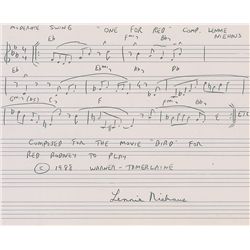 MODERATE SWING ONE FOR RED COMP. LENNIE NIEHAUS
Eb Fmi7 Bb7
Eb Ebmi7 Ab7 Db
Gmi7(b5) C7 F Fmi7 Bb7
ETC
COMPOSED FOR THE MOVIE "BIRD" FOR
RED RODNEY TO PLAY
© 1988 WARNER-TAMERLAINE
Lennie Niehaus